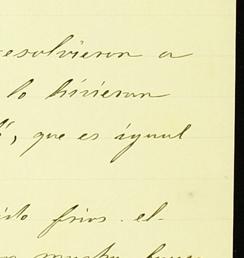 resolvieron a
lo hicieron
, que es igual
frios. el
mucha